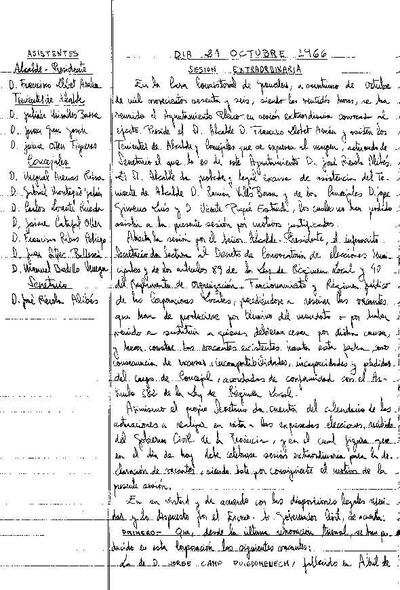 ASISTENTES
Alcalde - Presidente
D. Francisco
Tenientes de Alcalde
D. Julián
D. Juan
D. Jaime
Concejales
D. Miquel
D. Gabriel
D. Carlos
D. Jaime
D. Francisco Ribas
D. Juan
D. Manuel
Secretario
D. José
DIA 21 OCTUBRE 1966
SESION EXTRAORDINARIA
En la Casa Consistorial de a veintiuno de Octubre
de mil novecientos sesenta y seis, siendo las veintidós horas, se ha
reunido el Ayuntamiento Pleno en sesión extraordinaria convocada al
efecto. Preside el Sr. Alcalde D. Francisco y asisten los
Tenientes de Alcalde y Concejales que se expresan al margen, actuando de
Secretario el que lo es de este Ayuntamiento D. José
El Sr. Alcalde da por legal excusa de asistencia del Te-
niente de Alcalde D. Ramón y de los Concejales D. Jose
Gimenez y D. Vicente los cuales no han podido
asistir a la presente sesión por motivos justificados.
Abierta la sesión por el Señor Alcalde-Presidente, el infrascrito
Secretario da lectura al Decreto de Convocatoria de elecciones Muni-
cipales y de los artículos 89 de la Ley de Régimen Local y 40
del Reglamento de Organización, Funcionamiento y Régimen Jurídico
de las Corporaciones Locales, procediéndose a reseñar las vacantes
que han de producirse por término del mandato o por haber
venido a sustituir a quienes debieron cesar por dicha causa,
y hacer constar las vacantes existentes hasta esta fecha, como
consecuencia de excusas, incompatibilidades, incapacidades y pérdidas
del cargo de Concejal, acordadas de conformidad con el Ar-
tículo de la Ley de Régimen Local.
Asimismo el propio Secretario da cuenta del calendario de las
actuaciones a realizar en orden a las expresadas elecciones, recibido
del Gobierno Civil de la Provincia, y en el cual figura que
en el día de hoy debe celebrarse sesión extraordinaria para la de-
claración de vacantes, siendo este por consiguiente el motivo de la
presente sesión.
En su virtud y de acuerdo con las disposiciones legales
y lo dispuesto por el Excmo. Sr. Gobernador Civil, se acuerda:
PRIMERO- Que, desde la última renovación trienal, se han pro-
ducido en esta Corporación las siguientes vacantes:
La de D. JORGE CAMP PUIGDOMENECH, fallecido en Abril de